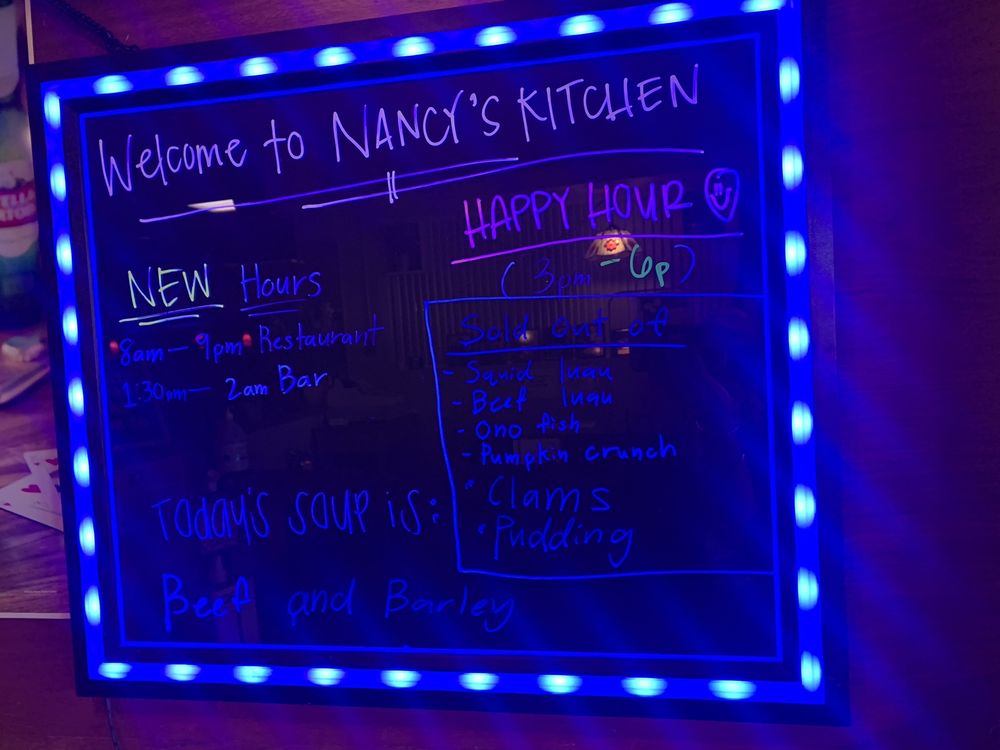 Welcome to NANCY'S KITCHEN
HAPPY HOUR
(3pm - 6p)
NEW Hours
8am — 9pm Restaurant
1:30pm — 2am Bar
Sold out of
- Squid luau
- Beef luau
- Ono fish
- Pumpkin crunch
• Clams
• Pudding
Today's soup is:
Beef and Barley